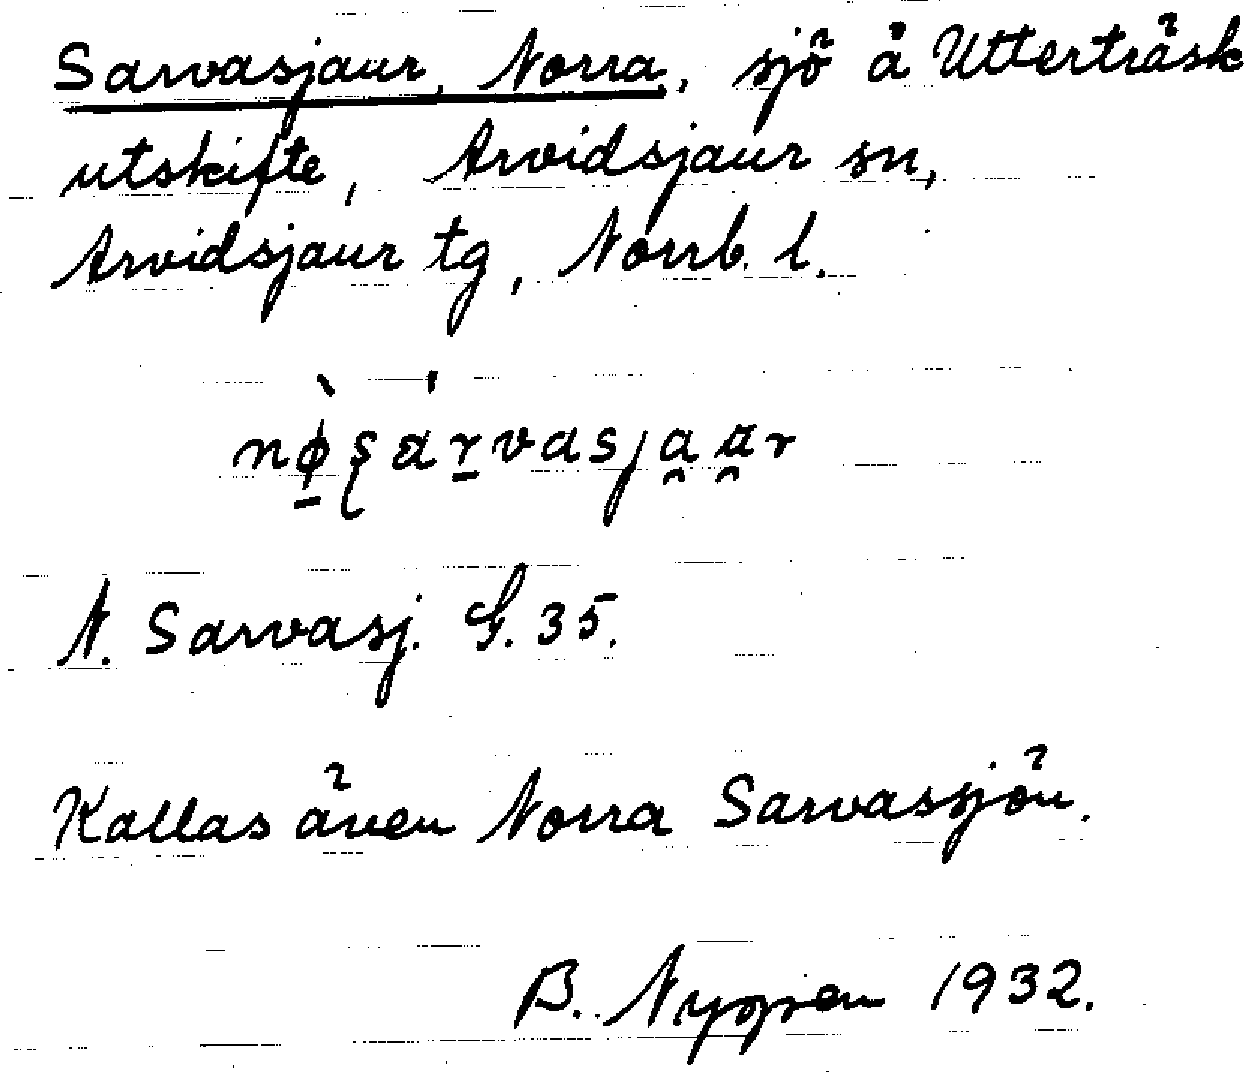 Sarvasjaur, Norra, sjö å Utterträsk
utskifte, Arvidsjaur sn,
Arvidsjaur tg, Norrb. l.
N. Sarvasj. G. 35.
Kallas även Norra Sarvassjön.
B. 1932.